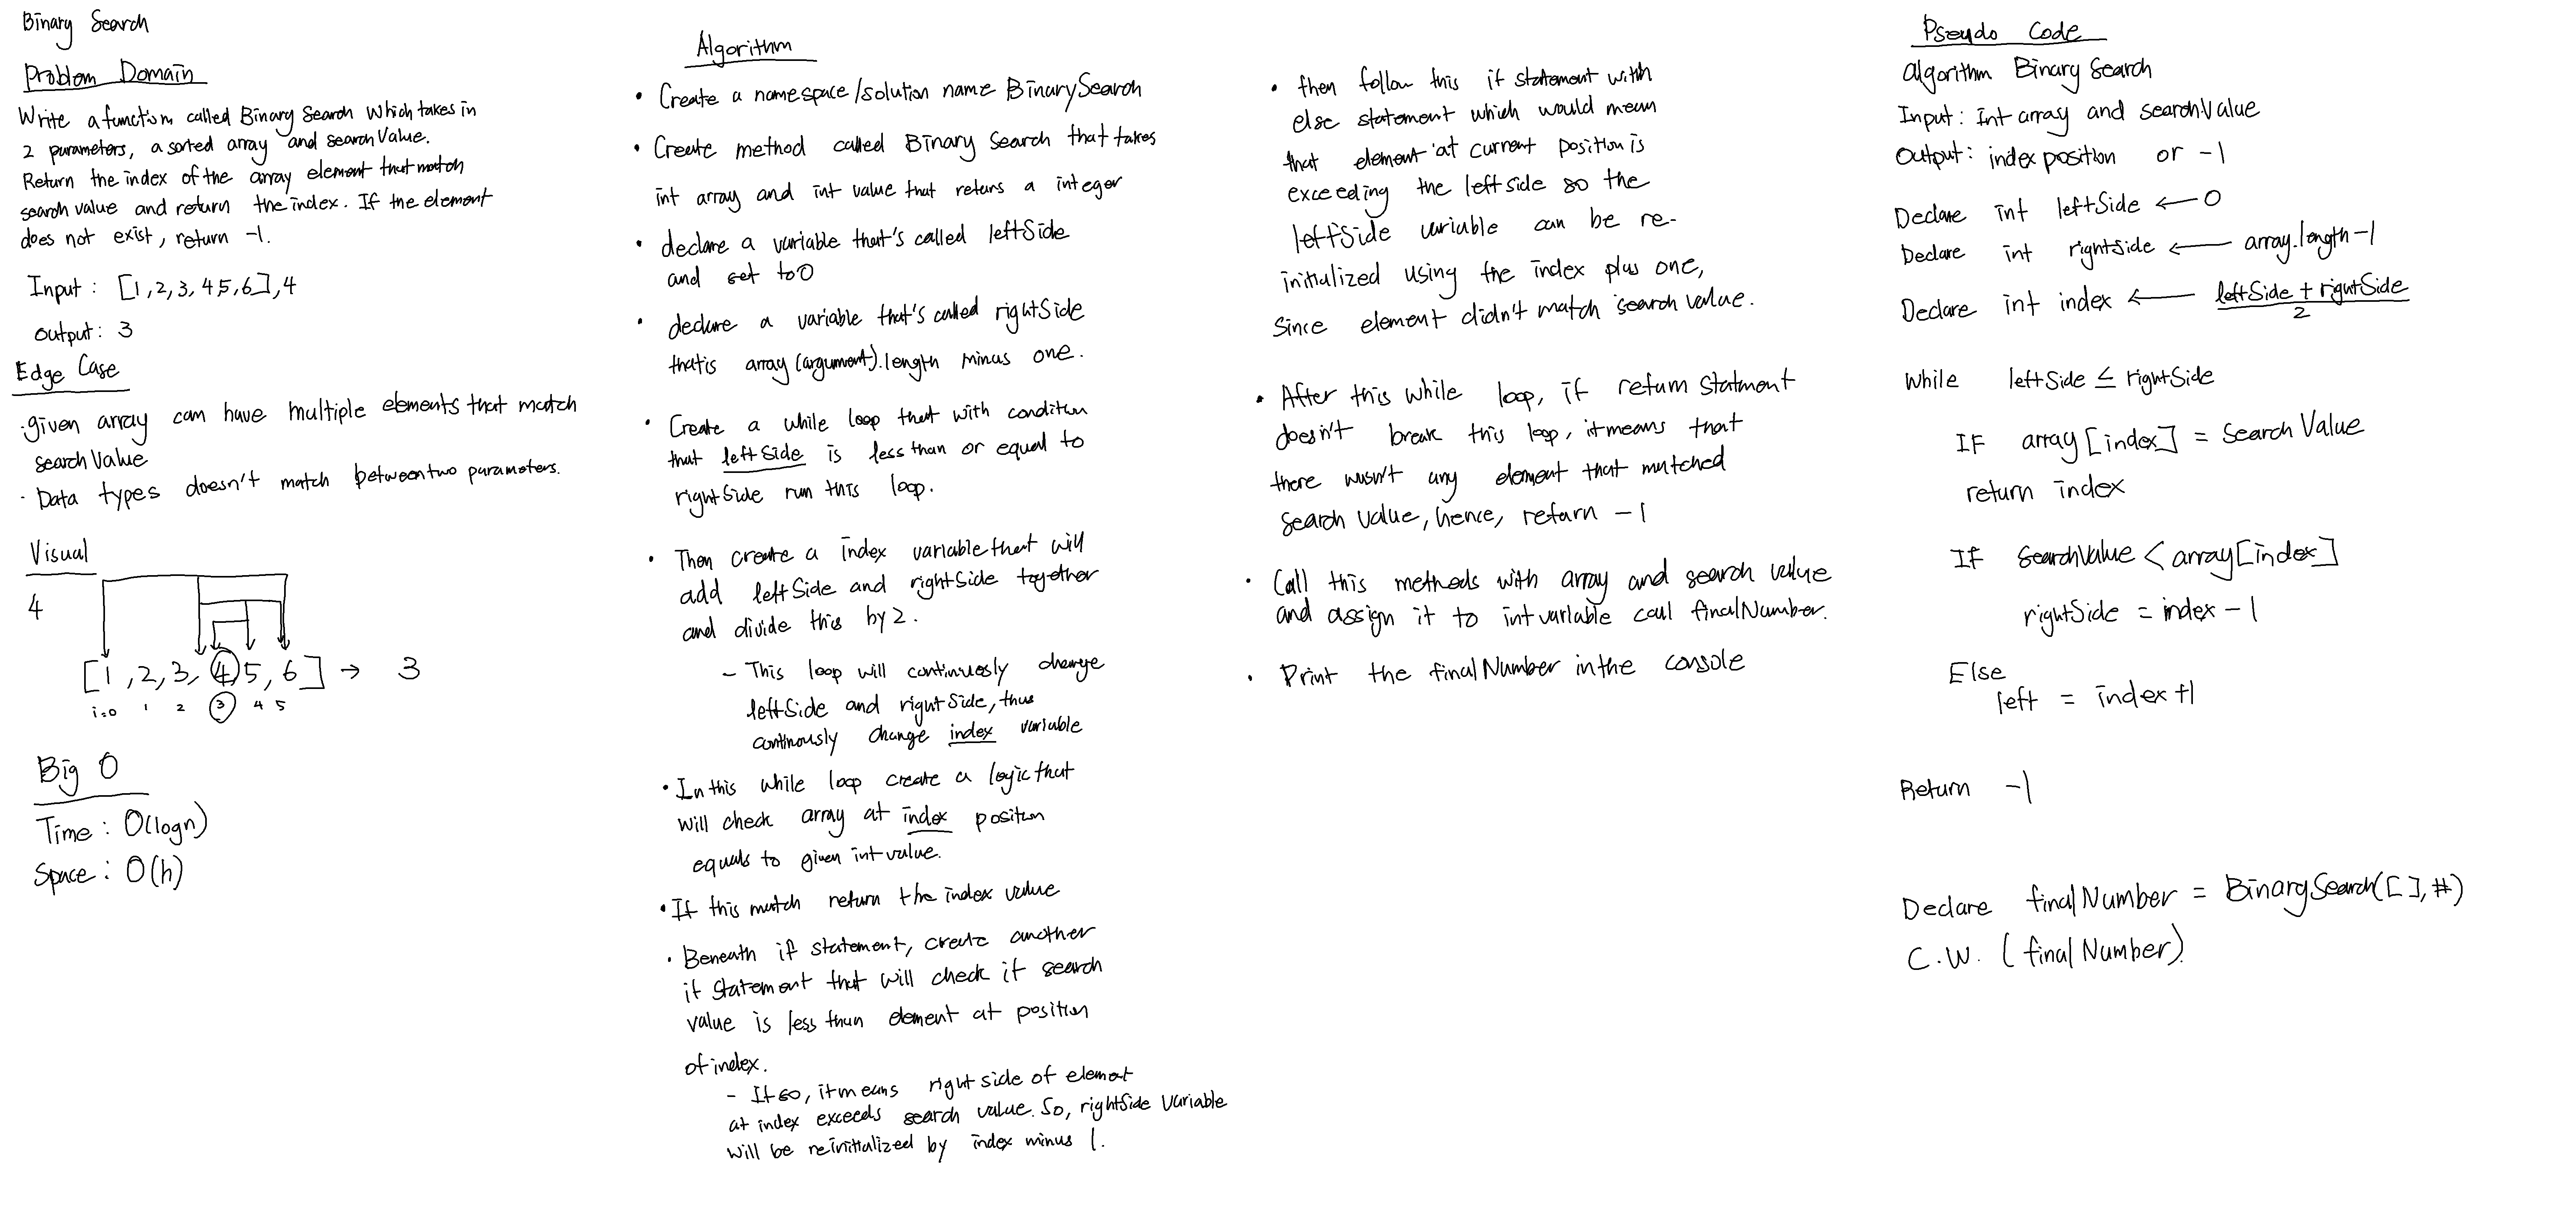 Binary Search
Problem Domain
Write a function called Binary Search which takes in
2 parameters, a sorted array and searchValue.
Return the index of the array element that match
search value and return the index. If the element
does not exist, return -1.
Input : [1,2,3,45,6],4
output: 3
Edge Case
· given array can have multiple elements that match
searchValue
· Data types doesn't match between two parameters.
Visual
4
[1,2,3,4,5,6] → 3
i=0 1 2 3 4 5
Big O
Time : O(logn)
Space : O(h)
Algorithm
• Create a namespace/solution name BinarySearch
• Create method called Binary Search that takes
int array and int value that returs a integer
• declare a variable that's called leftSide
and set to 0
• declare a variable that's called rightSide
that is array (argument).length minus one.
• Create a while loop that with condition
that leftSide is less than or equal to
rightSide run this loop.
• Then create a index variable that will
add leftSide and rightSide together
and divide this by 2.
- This loop will continuesly change
leftSide and rightSide, thus
continously change index variable
• In this while loop create a logic that
will check array at index position
equals to given int value.
• If this match return the index value
• Beneath if statement, create another
if statement that will check if search
value is less than element at position
of index.
- If so, it means right side of elemet
at index exceeds search value. So, rightSide variable
will be reinitialized by index minus 1.
• then follow this if statement with
else statement which would mean
that element at current position is
exceeding the leftside so the
leftSide variable can be re-
initialized using the index plus one,
Since element didn't match search value.
• After this while loop, if return statment
doesn't break this loop, it means that
there wasn't any element that matched
search value, hence, return -1
• Call this methods with array and search value
and assign it to int variable call finalNumber.
• Print the finalNumber in the console
Pseudo Code
Algorithm Binary Search
Input : Int array and searchValue
Output : index position or -1
Declare int leftSide ← 0
Declare int rightSide ← array.length -1
Declare int index ← leftSide + rightSide
2
While leftSide ≤ rightSide
IF array[index] = Search Value
return index
If SearchValue < array[index]
rightSide = index -1
Else
left = index +1
Return -1
Declare finalNumber = BinarySearch([ ], #)
C.W. (finalNumber)